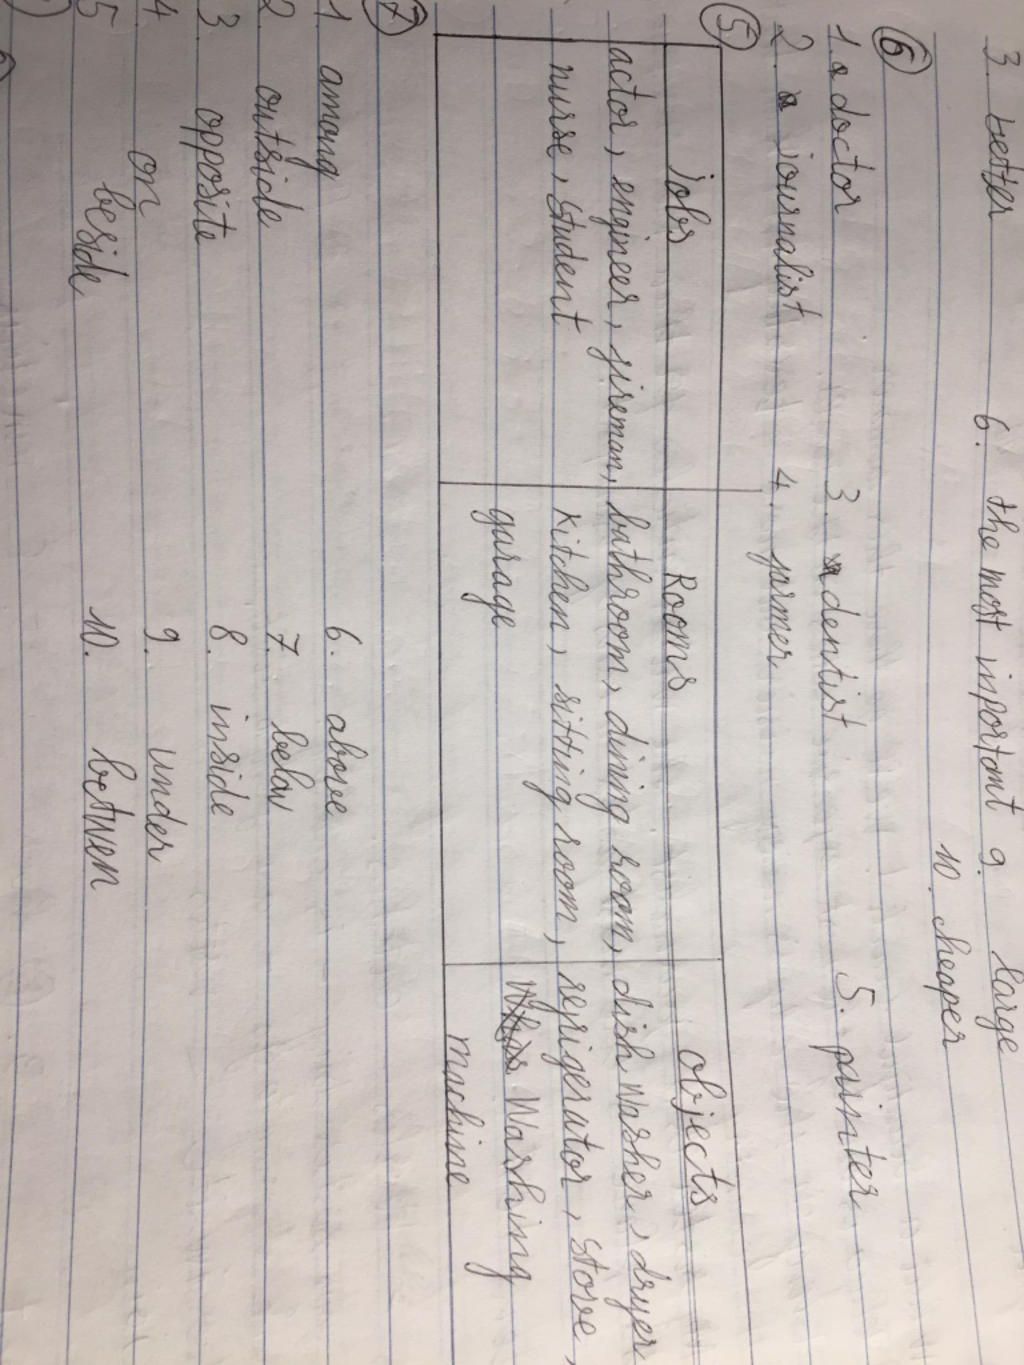 3. better 6. the most inportant 9. large
10. cheaper
6
1. a doctor 3. a dentist 5. painter
2. a journalist 4. farmer
5
jobs Rooms objects
actor, engineer, fireman, bathroom, dining room, dish washer, dryer
nurse, student kitchen, sitting room, refigerator, stove,
garage Washing
machine
7
1. among 6. above
2. outside 7. below
3. opposite 8. inside
4. on 9. under
5. beside 10. betwen